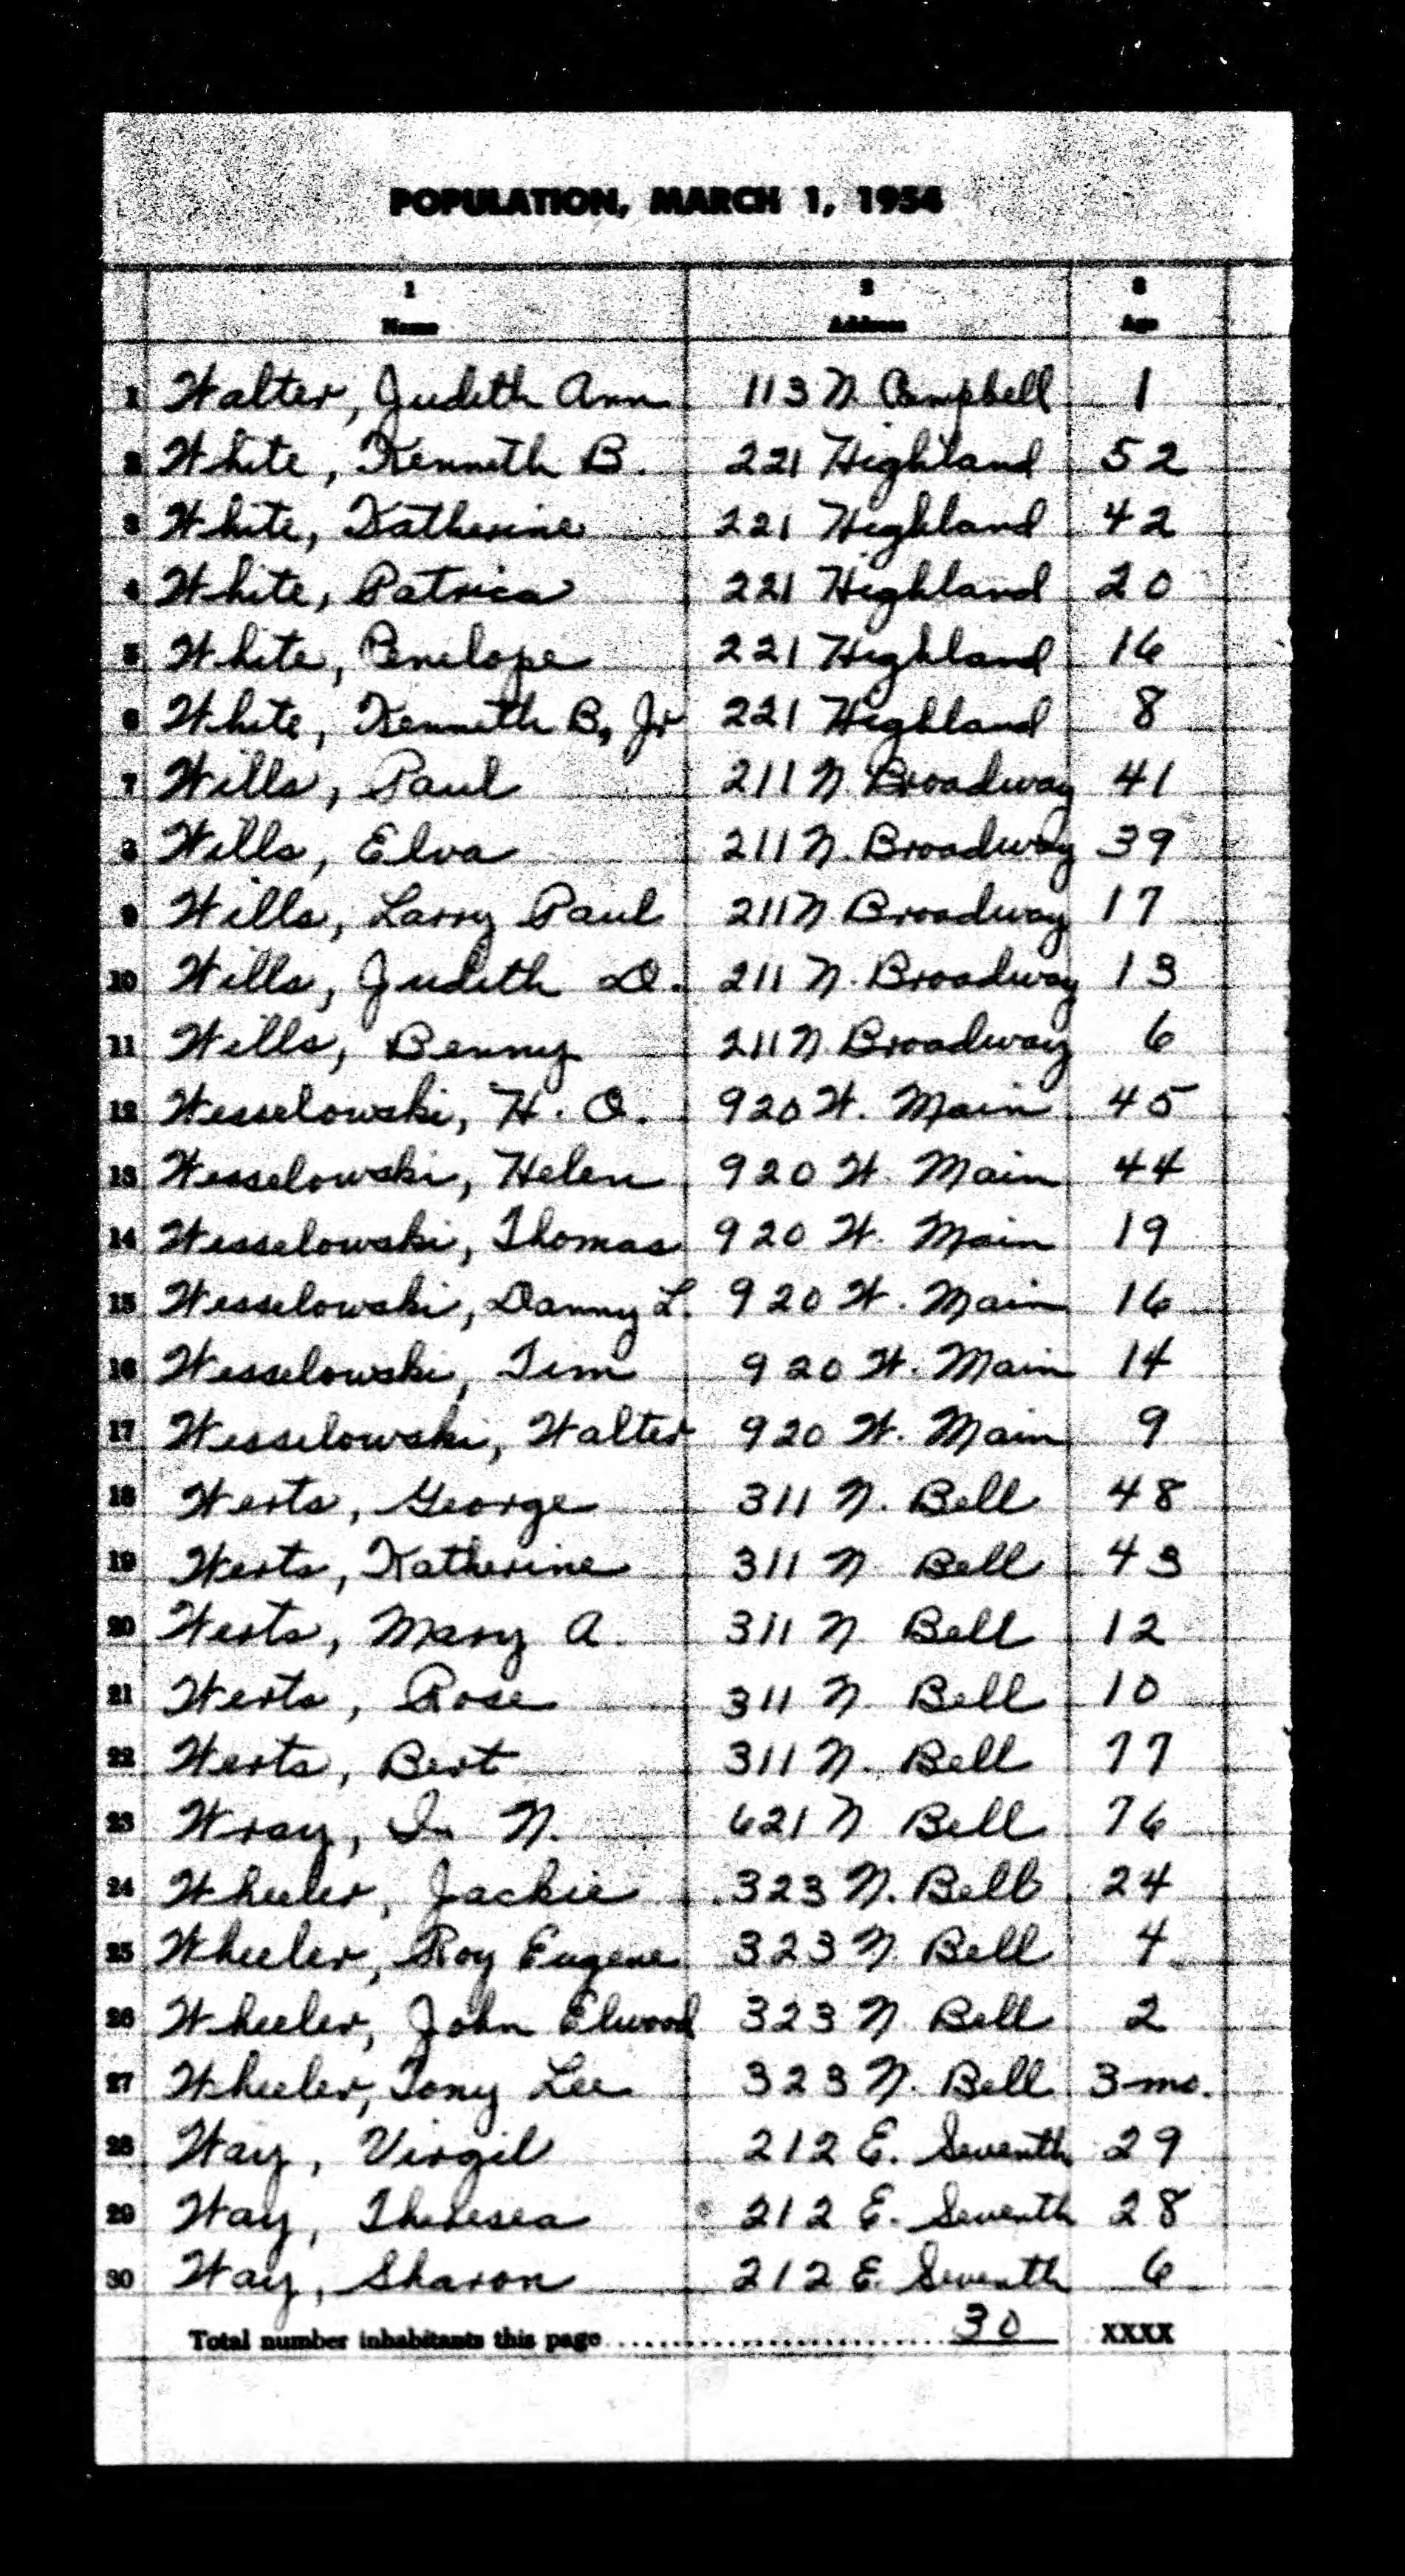 POPULATION, MARCH 1, 1954
1 2 3
Name Address Age
1 Walter, Judith Ann 113 N. Campbell 1
2 White, Kenneth B. 221 Highland 52
3 White, Katherine 221 Highland 42
4 White, Patrica 221 Highland 20
5 White, Penelope 221 Highland 16
6 White, Kenneth B, Jr 221 Highland 8
7 Wills, Paul 211 N. Broadway 41
8 Wills, Elva 211 N. Broadway 39
9 Wills, Larry Paul 211 N. Broadway 17
10 Wills, Judith D. 211 N. Broadway 13
11 Wills, Benny 211 N. Broadway 6
12 Wesselowski, H. O. 920 W. Main 45
13 Wesselowski, Helen 920 W. Main 44
14 Wesselowski, Thomas 920 W. Main 19
15 Wesselowski, Danny L. 920 W. Main 16
16 Wesselowski, Tim 920 W. Main 14
17 Wesselowski, Walter 920 W. Main 9
18 Werts, George 311 N. Bell 48
19 Werts, Katherine 311 N. Bell 43
20 Werts, Mary A. 311 N. Bell 12
21 Werts, Rose 311 N. Bell 10
22 Werts, Bert 311 N. Bell 77
23 Wray, N. 621 N Bell 76
24 Wheeler, Jackie 323 N. Bell 24
25 Wheeler, Roy Eugene 323 N. Bell 4
26 Wheeler, John Elwood 323 N. Bell 2
27 Wheeler, Tony Lee 323 N. Bell 3 mo.
28 Way, Virgil 212 E. Seventh 29
29 Way, Theresea 212 E. Seventh 28
30 Way, Sharon 212 E. Seventh 6
Total number inhabitants this page 30 XXXX